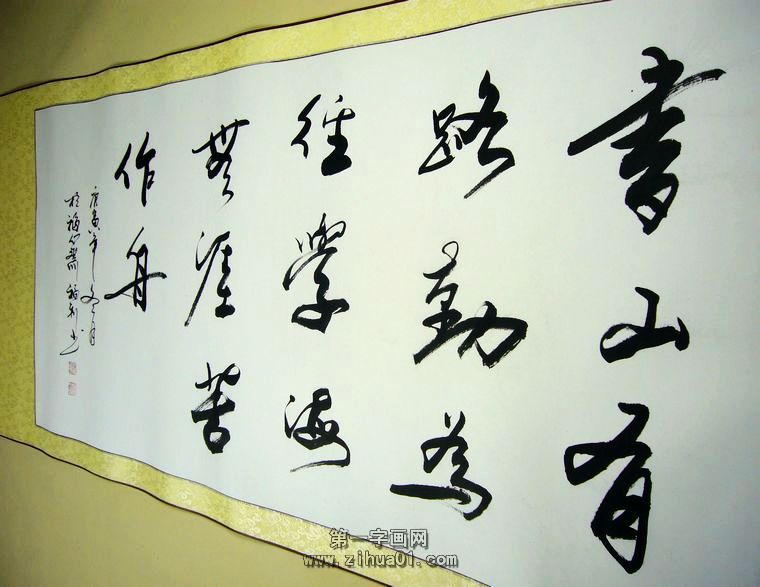 書山有
路勤為
径學海
無涯苦
作舟
庚寅年冬月
第一字画网
www.zihua01.com